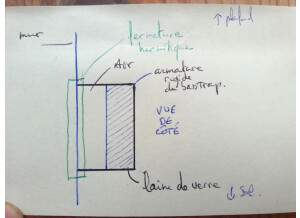 fermeture
hermétique
↑ plafond
mur
AIR
armature
rigide
du bassTrap.
VUE
DE
CÔTÉ
laine de verre
↓ Sol.